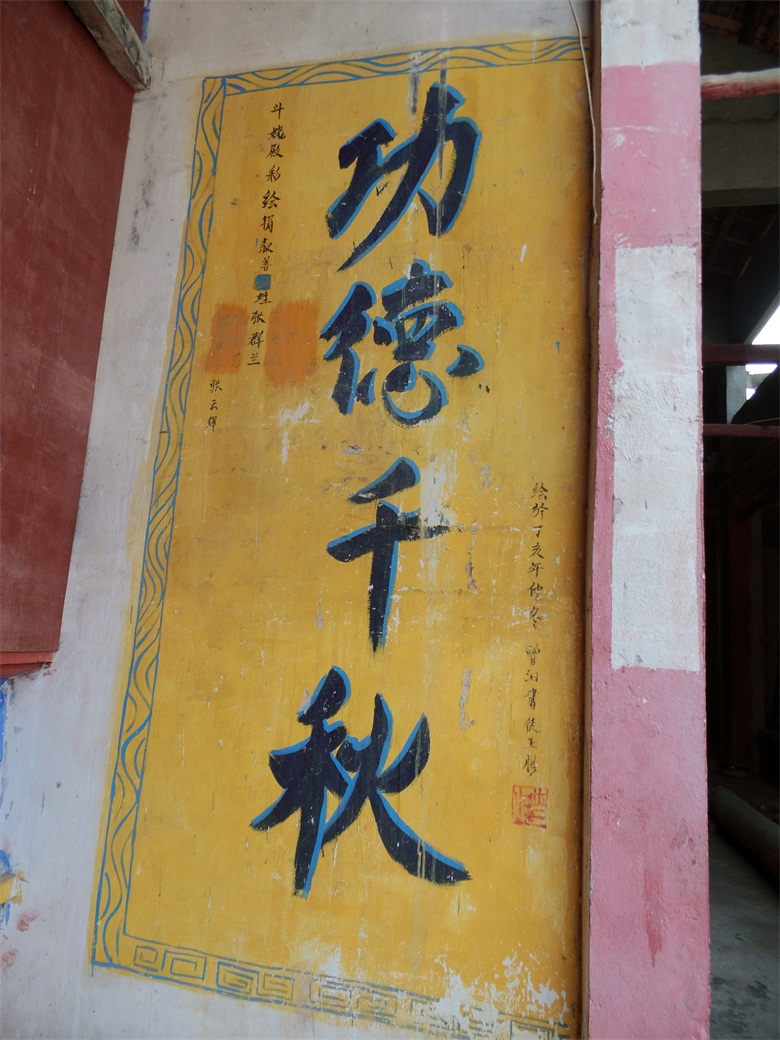 功德千秋
斗姥殿彩绘捐款善 姓张群兰
张云辉
绘於丁亥年仲冬 曾 书